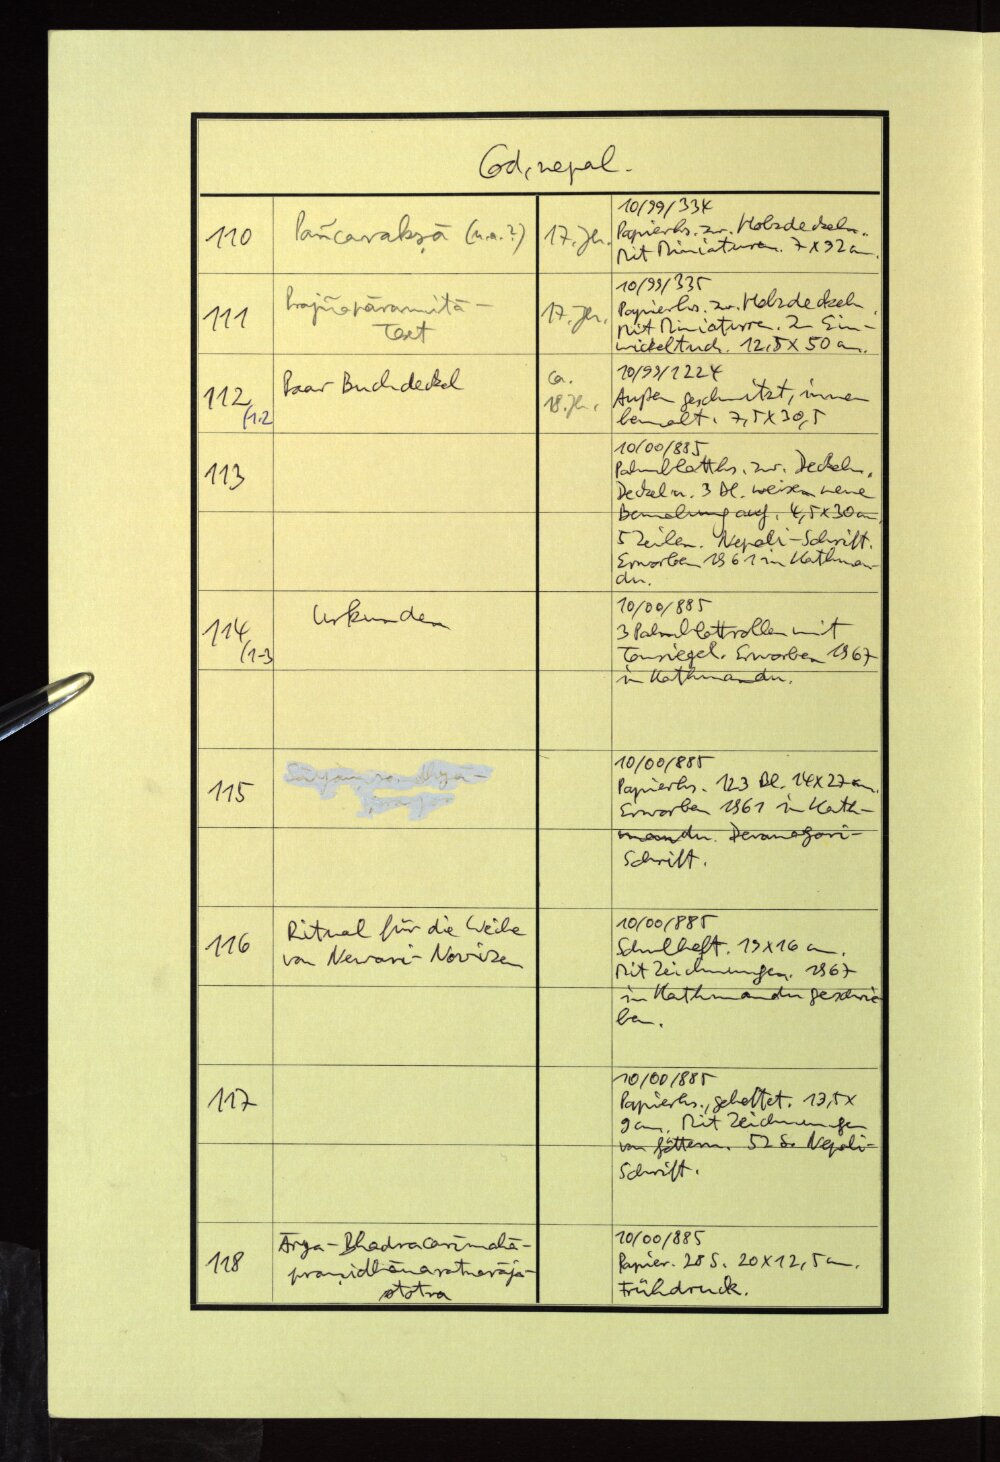 Cod. nepal.
110
Pañcarakṣā (u.a.?)
17. Jh.
10/99/334
Papierhs. zw. Holzdeckeln.
Mit Miniaturen. 7 x 32 cm.
111
Prajñāpāramitā-
Text
17. Jh.
10/99/335
Papierhs. zw. Holzdeckeln
Mit Miniaturen. In Ein-
wickeltuch. 12,5 x 50 cm.
112
(1-2
Paar Buchdeckel
ca.
18. Jh.
10/99/1224
Außen geschnitzt, innen
bemalt. 7,5 x 30,5
113
10/00/885
Palmblatths. zw. Deckeln.
Deckel u. 3 Bl. weisen neue
Bemalung auf. 4,5 x 30 cm.
5 Zeilen. Nepali-Schrift.
Erworben 1961 in Kathman-
du.
114
(1-3
Urkunden
10/00/885
3 Palmblattrollen mit
Tonsiegel. Erworben 1967
in Kathmandu.
115
10/00/885
Papierhs. 123 Bl. 14 x 27 cm.
Erworben 1961 in Kath-
mandu. Devanagari-
Schrift.
116
Ritual für die Weihe
von Newari-Novizen
10/00/885
Schulheft. 19 x 16 cm.
Mit Zeichnungen. 1967
in Kathmandu geschrie
ben.
117
10/00/885
Papierhs., geheftet. 13,5 x
9 cm. Mit Zeichnungen
von Göttern. 52 S. Nepali-
Schrift.
118
Ārya-Bhadracarīmahā-
praṇidhānaratnarāja-
stotra
10/00/885
Papier. 28 S. 20 x 12,5 cm.
Frühdruck.